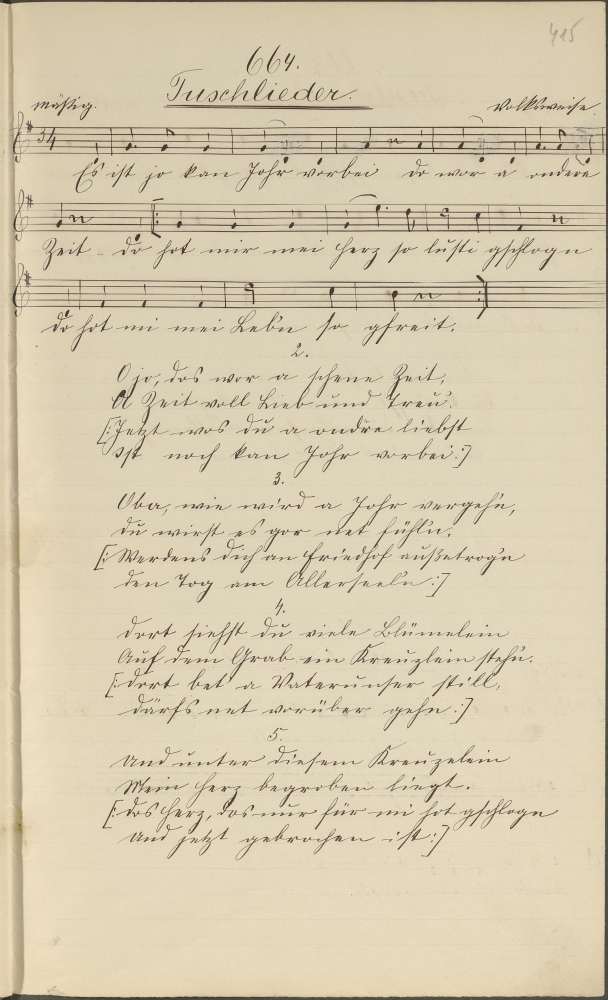 415
664.
Tuschlieder.
mäßig. Volksweise.
3/4
Es ist jo kan Johr vorbei do wor a andere
Zeit - do hot mir mei Herz so lusti gschlogn
do hot mi mei Leb'n so gfreit.
2.
O jo, dos wor a schene Zeit,
A Zeit voll Lieb und Treu.
[: Jetzt wos du a ondre liebst
Ist noch kan Johr vorbei :]
3.
Oba, wie wird a Johr vergeh'n,
du wirst es gor net fühl'n.
[: Werdens dich an Friedhof außetrog'n
den Tog am Allerseel'n :]
4.
dort siehst du viele Blümelein
Auf dem Grab ein Kreuzlein stehn.
[: dort bet' a Vaterunser still,
därfs net vorüber gehn. :]
5.
Und unter diesem Kreuzelein
Mein Herz begroben liegt.
[: dos Herz, dos nur für mi hot gschlogn
Und jetzt gebrochen ist :]